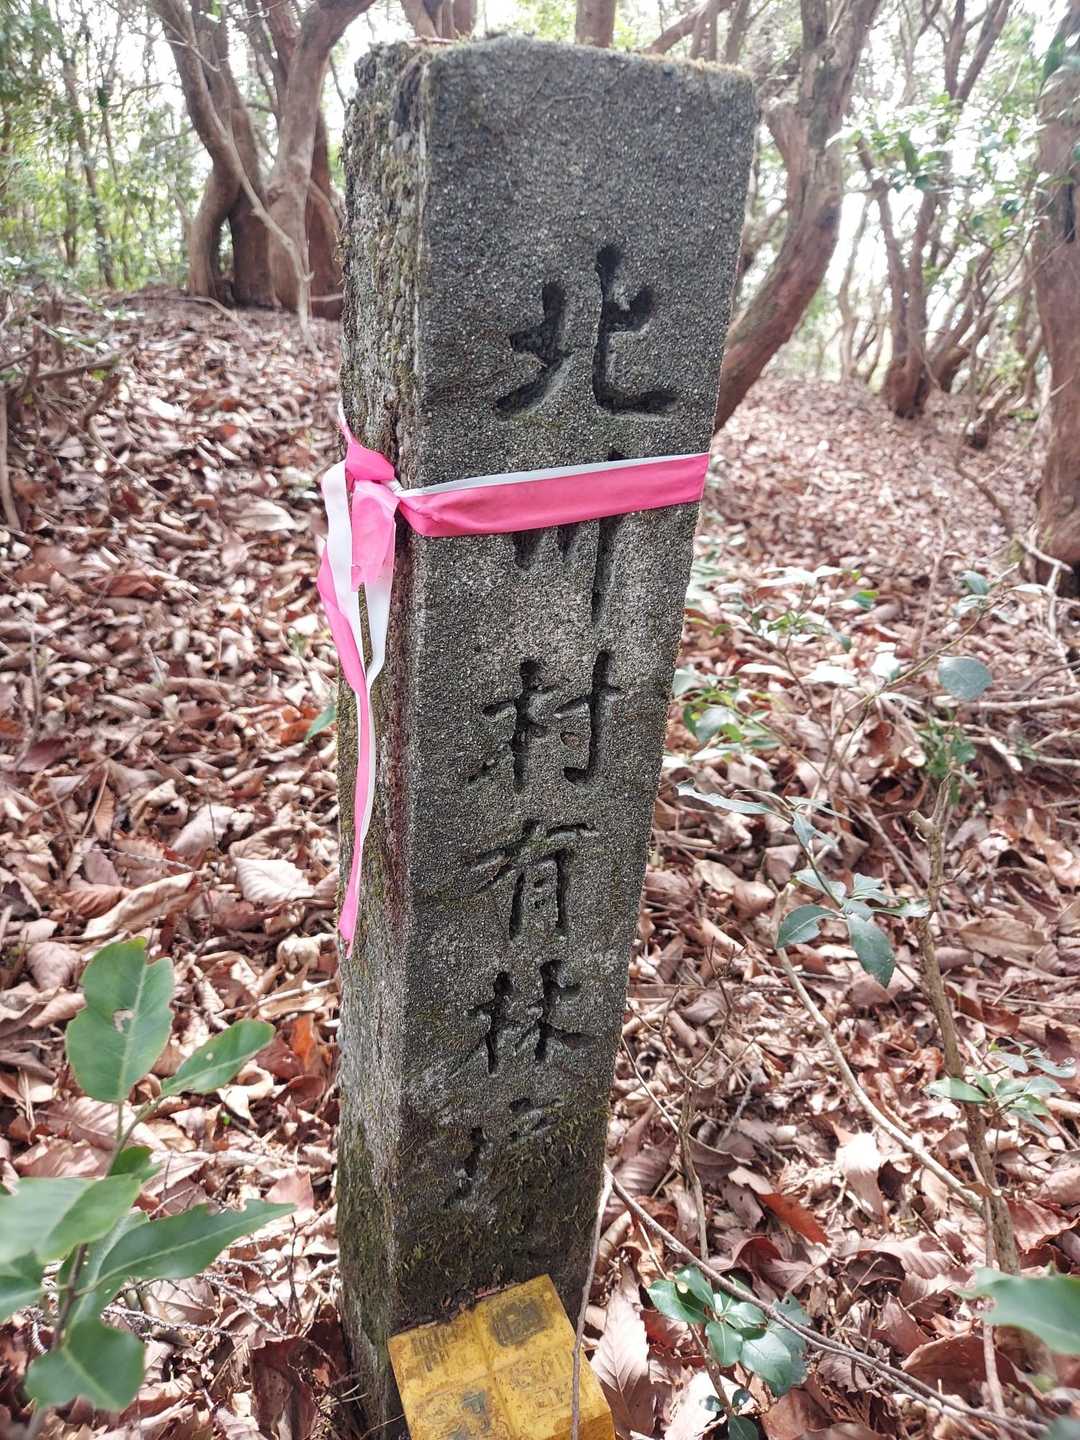 北川村有林